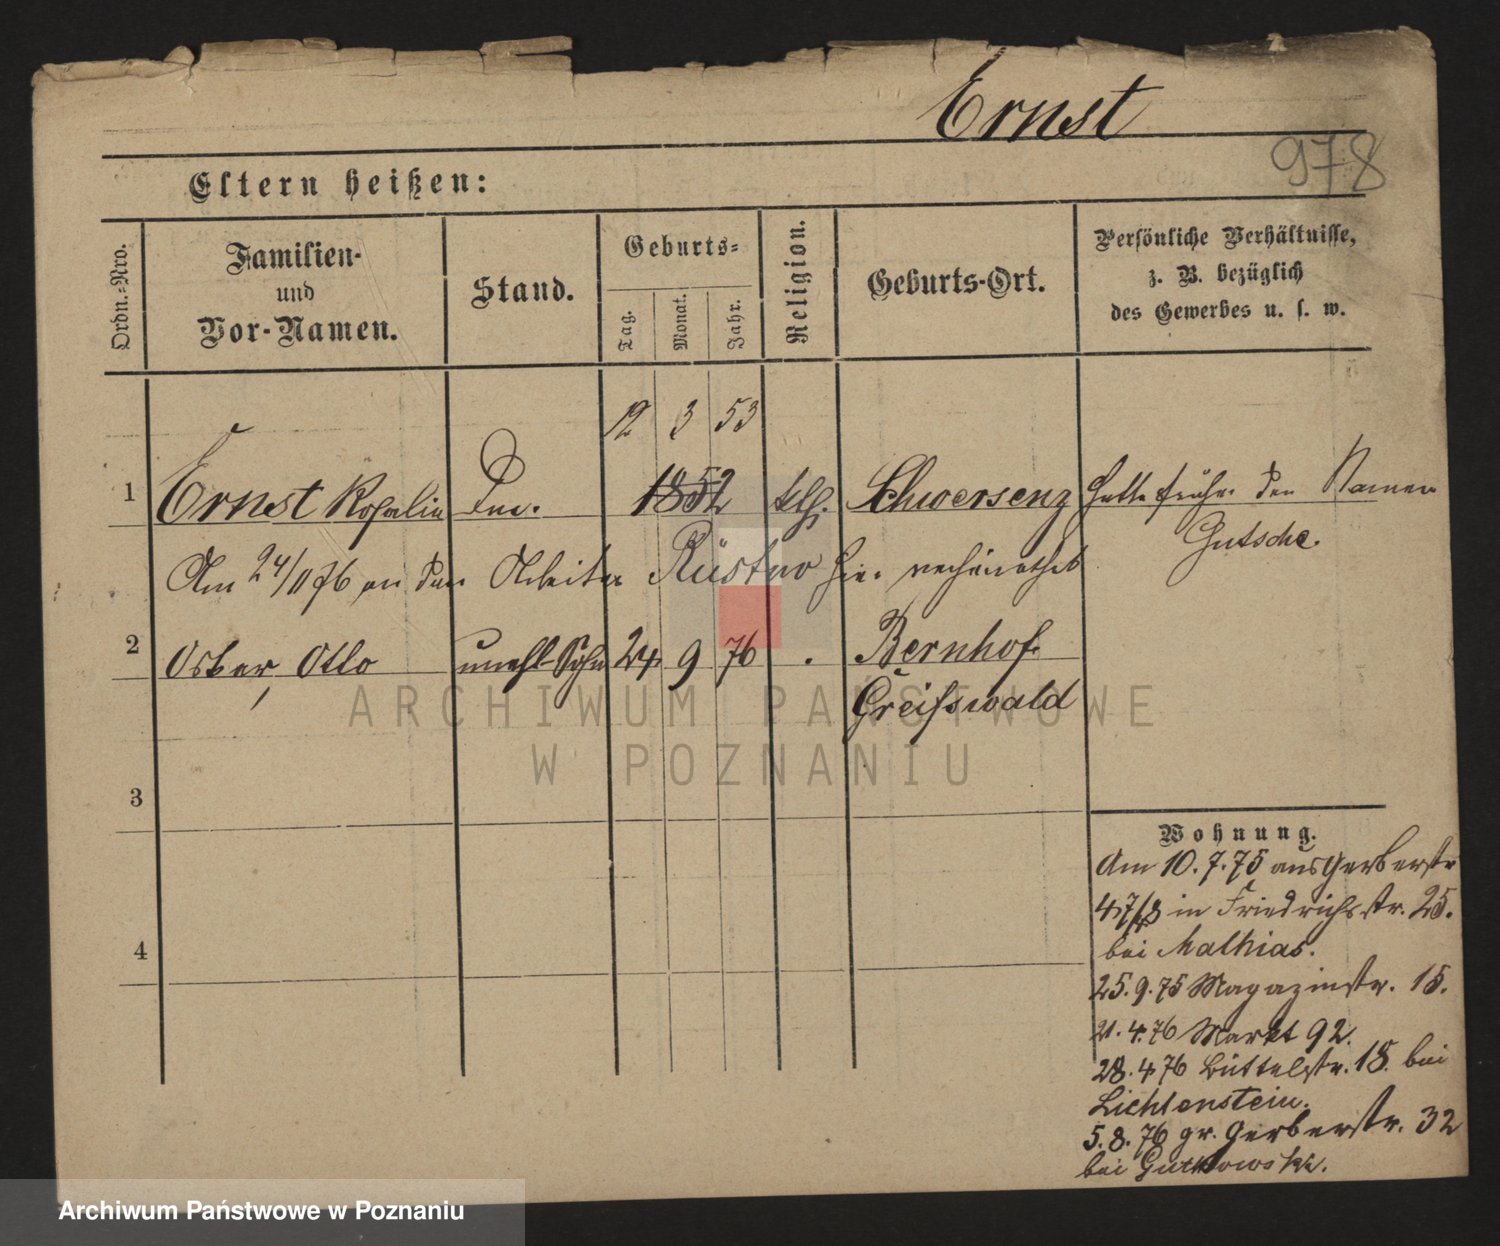 Ernst
978
Eltern heißen:
Ordn.-Nro.
Familien-
und
Vor-Namen.
Stand.
Geburts-
Tag.
Monat.
Jahr.
Religion.
Geburts-Ort.
Persönliche Verhältnisse,
z. B. bezüglich
des Gewerbes u. s. w.
12 3 53
1 Ernst Rosalie 1852 kth. Schwersenz hatte früher den Namen
Gutsche.
Am 24/11 76 an den Arbeiter Rüster hier verheirathet
2 Oskar, Otto unehl. Sohn 24 9 76 . Bernhof.
Greifswald
ARCHIWUM PAŃSTWOWE
W POZNANIU
3
4
Wohnung.
Am 10.7.75 aus Gerberstr
47/8 in Friedrichsstr. 25.
bei Mathias.
25.9.75 Magazinstr. 15.
21.4.76 Markt 92.
28.4 76 Büttelstr. 18. bei
Lichtenstein.
5.8.76 gr. Gerberstr. 32
bei Gutkowski.
Archiwum Państwowe w Poznaniu